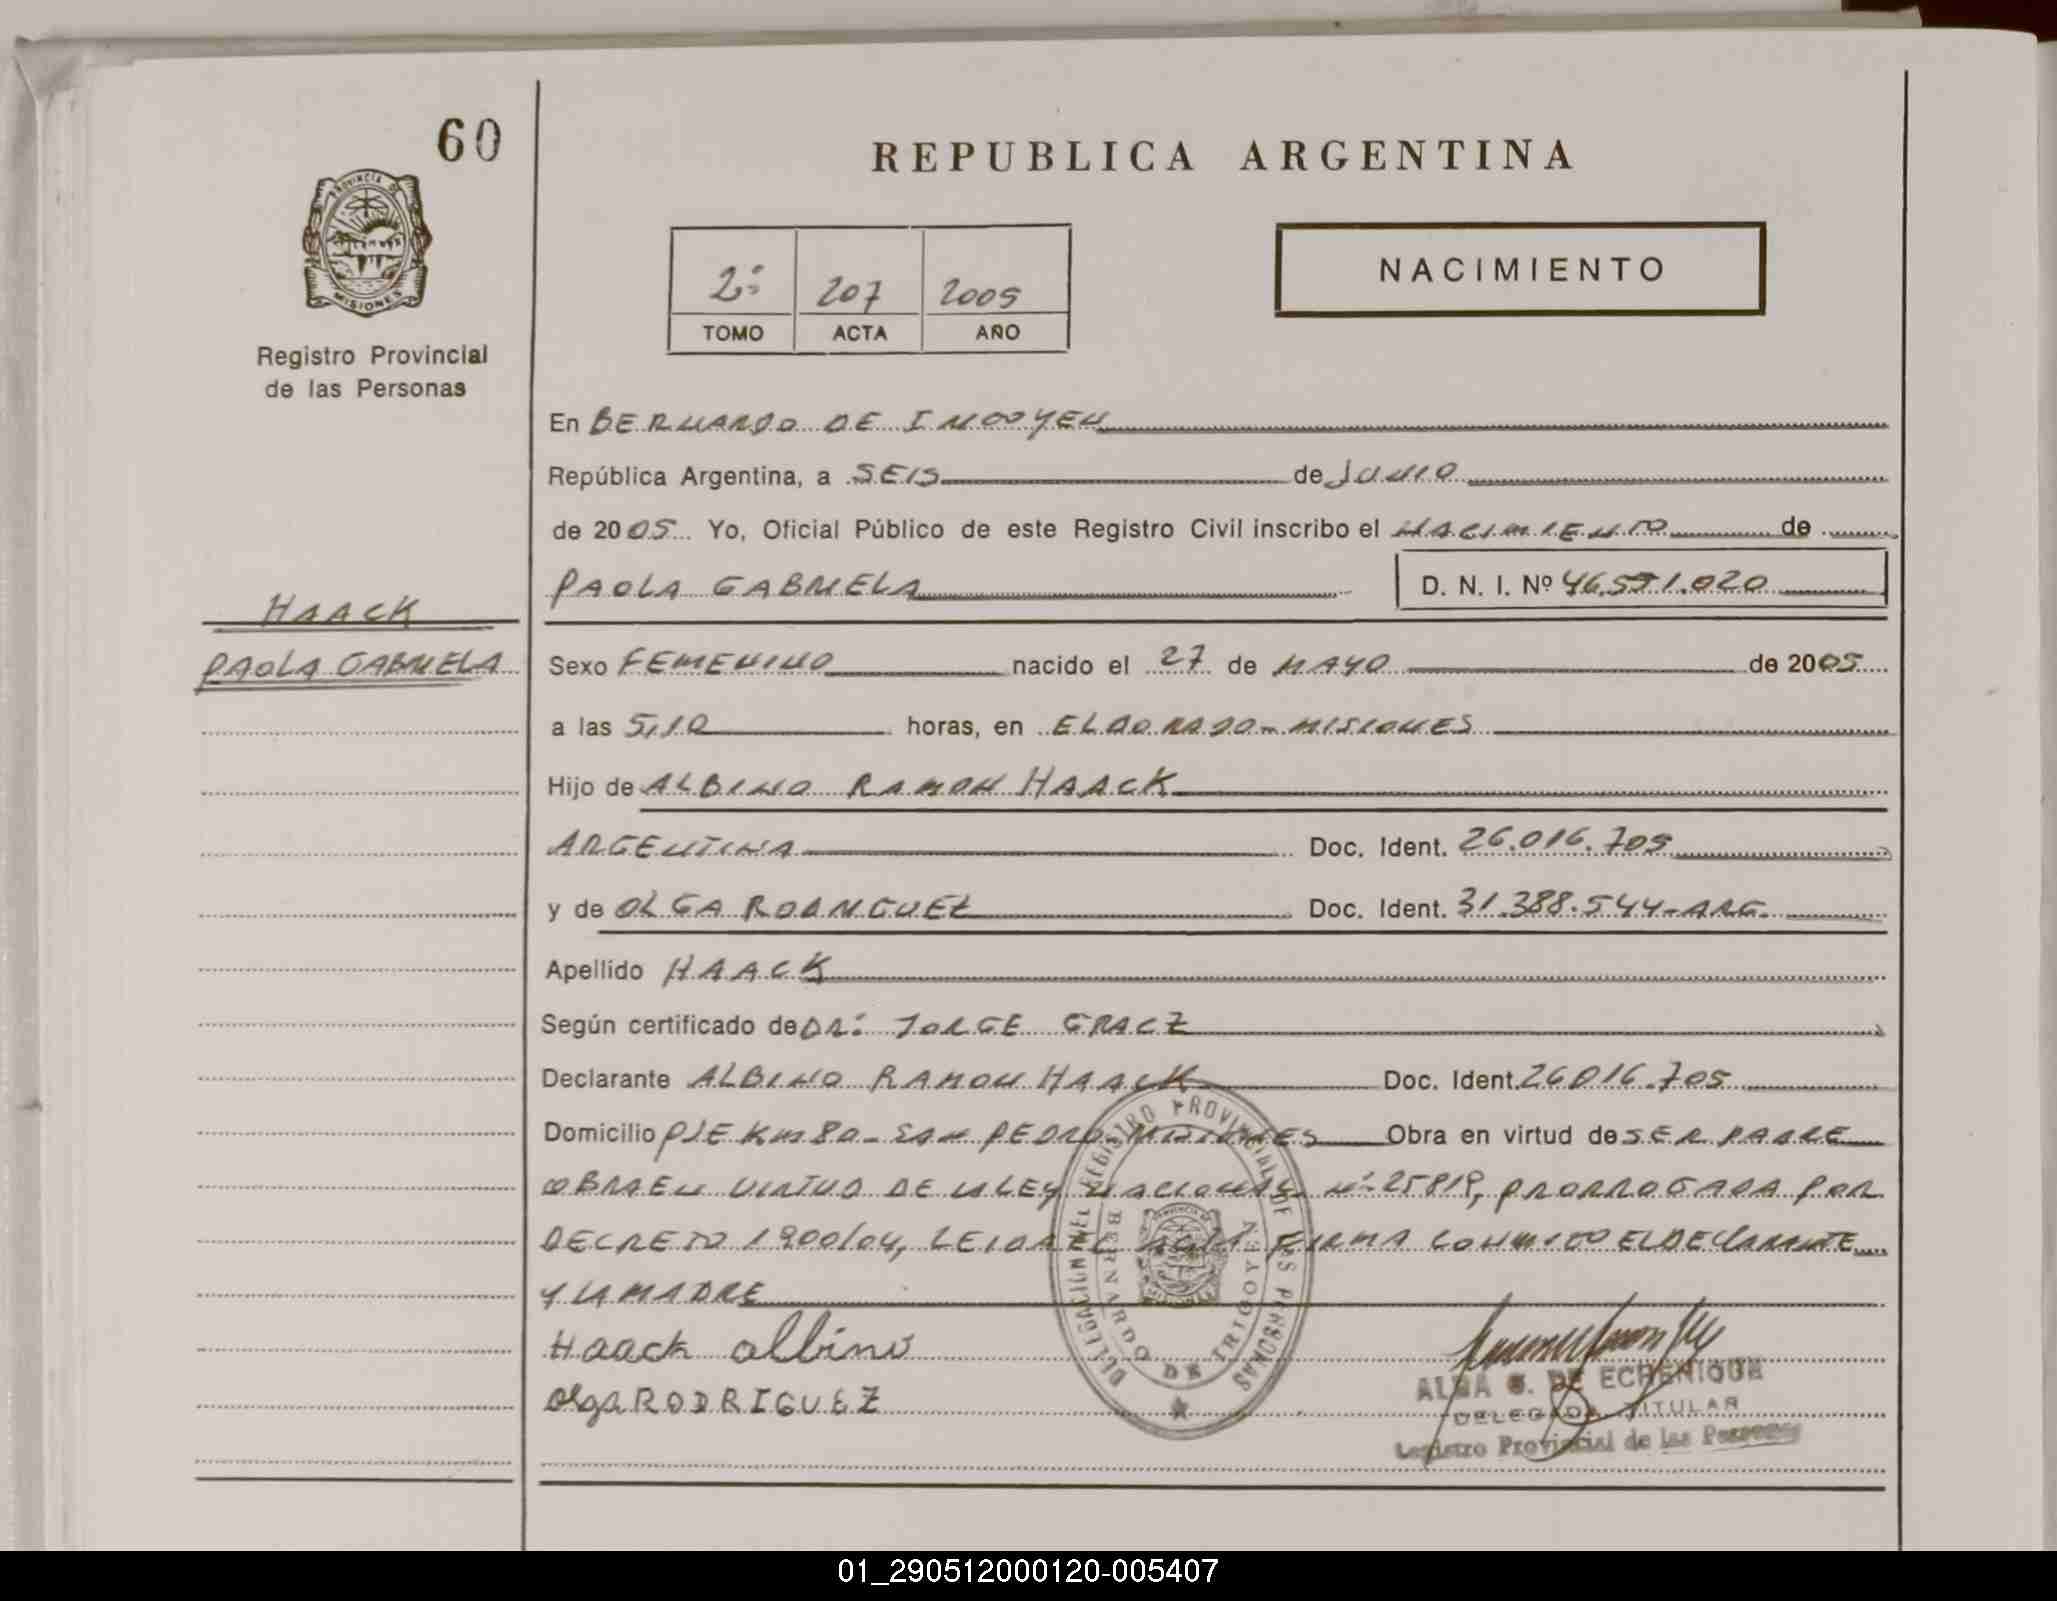 60
PROVINCIA DE
MISIONES
Registro Provincial
de las Personas
REPUBLICA ARGENTINA
2º 207 2005
TOMO ACTA AÑO
NACIMIENTO
En BERNARDO DE IRIGOYEN
República Argentina, a SEIS de JUNIO
de 2005 Yo, Oficial Público de este Registro Civil inscribo el NACIMIENTO de
PAOLA GABRIELA D. N. I. Nº 46.591.020
HAACK
PAOLA GABRIELA
Sexo FEMENINO nacido el 27 de MAYO de 2005
a las 5,10 horas, en ELDORADO - MISIONES
Hijo de ALBINO RAMON HAACK
ARGENTINA Doc. Ident. 26.016.705
y de OLGA RODRIGUEZ Doc. Ident. 31.388.544 - ARG.
Apellido HAACK
Según certificado de DR: JORGE GRACZ
Declarante ALBINO RAMON HAACK Doc. Ident. 26016.705
Domicilio PJE KM 80 - SAN PEDRO - MISIONES Obra en virtud de SER PADRE
OBRA EN VIRTUD DE LA LEY NACIONAL Nº 25819, PRORROGADA POR
DECRETO 1900/04, LEIDA EL ACTA FIRMA CONMIGO EL DECLARANTE
Y LA MADRE
Haack albino
Olga RODRIGUEZ
DELEGACION DEL REGISTRO PROVINCIAL DE LAS PERSONAS
BERNARDO DE IRIGOYEN
ALBA G. DE ECHENIQUE
DELEGADA TITULAR
Registro Provincial de las Personas
01_290512000120-005407